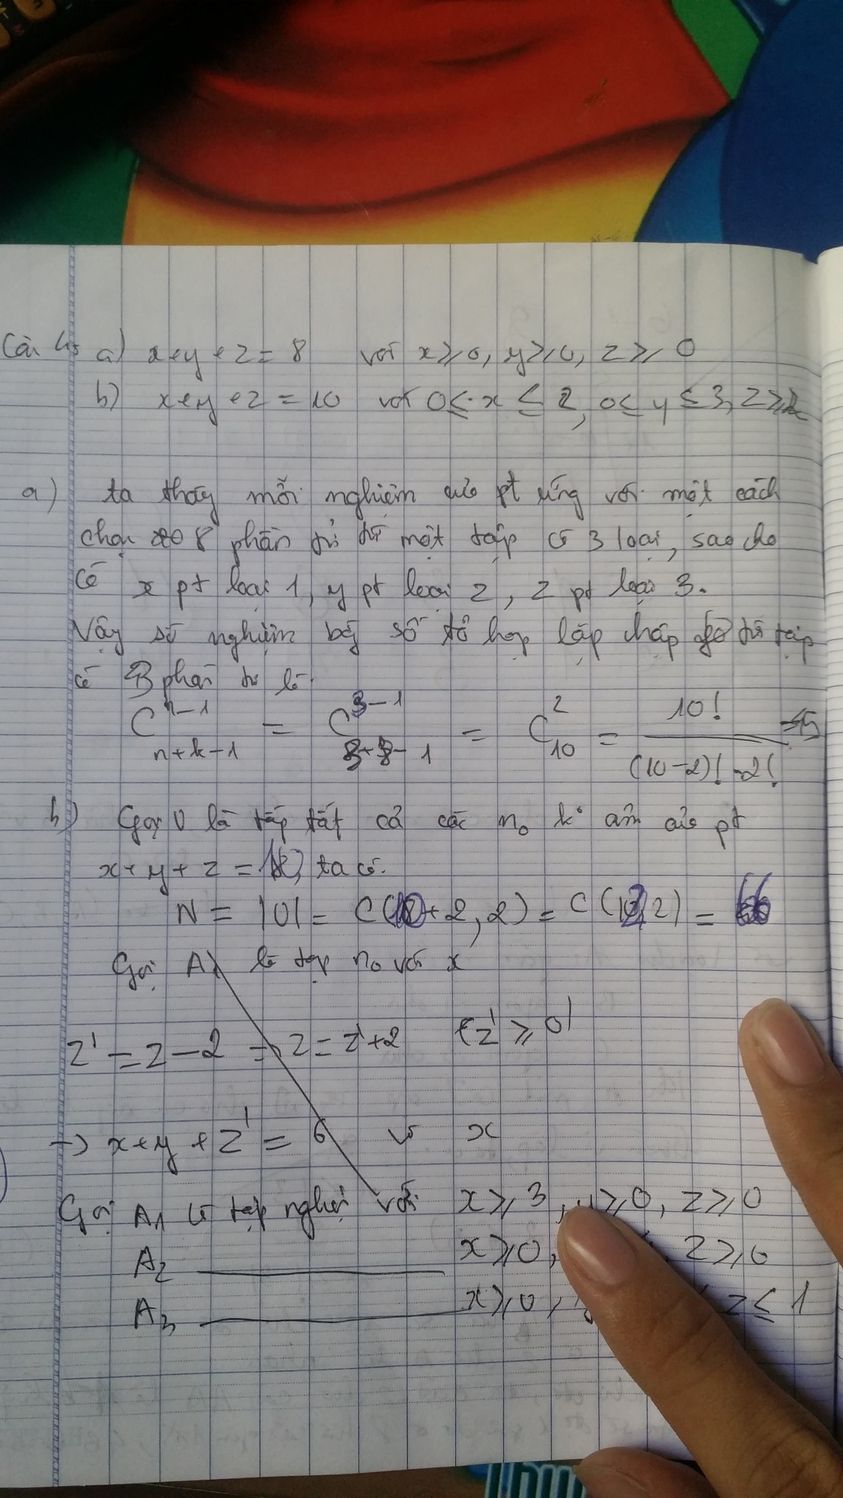 a) x+y+z = 8 với x ≥ 0, y ≥ 0, z ≥ 0
b) x+y+z = 10 với 0 ≤ x ≤ 2, 0 ≤ y ≤ 3, z ≥
a) ta thấy mỗi nghiệm của pt ứng với một cách
chọn 8 phần tử từ một tập có 3 loại, sao cho
có x pt loại 1, y pt loại 2, z pt loại 3.
Vậy số nghiệm bằng số tổ hợp lặp chập từ tập
có 3 phần tử là.
C^{n-1}_{n+k-1} = C^{3-1}_{3+8-1} = C^{2}_{10} = 10! / (10-2)! . 2! = 45
b) Gọi U là tập tất cả các n₀ k° âm của pt
x+y+z = 10, ta có.
N = |U| = C(10+2, 2) = C(12, 2) = 66
Gọi A₁ là tập n₀ với x
z' = z - 2 → z = z'+2 (z' ≥ 0)
→ x+y+z' = 6 x
Gọi A₁ là tập nghiệm với x ≥ 3, y ≥ 0, z ≥ 0
A₂ x ≥ 0, z ≥ 0
A₃ x ≥ 0, z ≤ 1